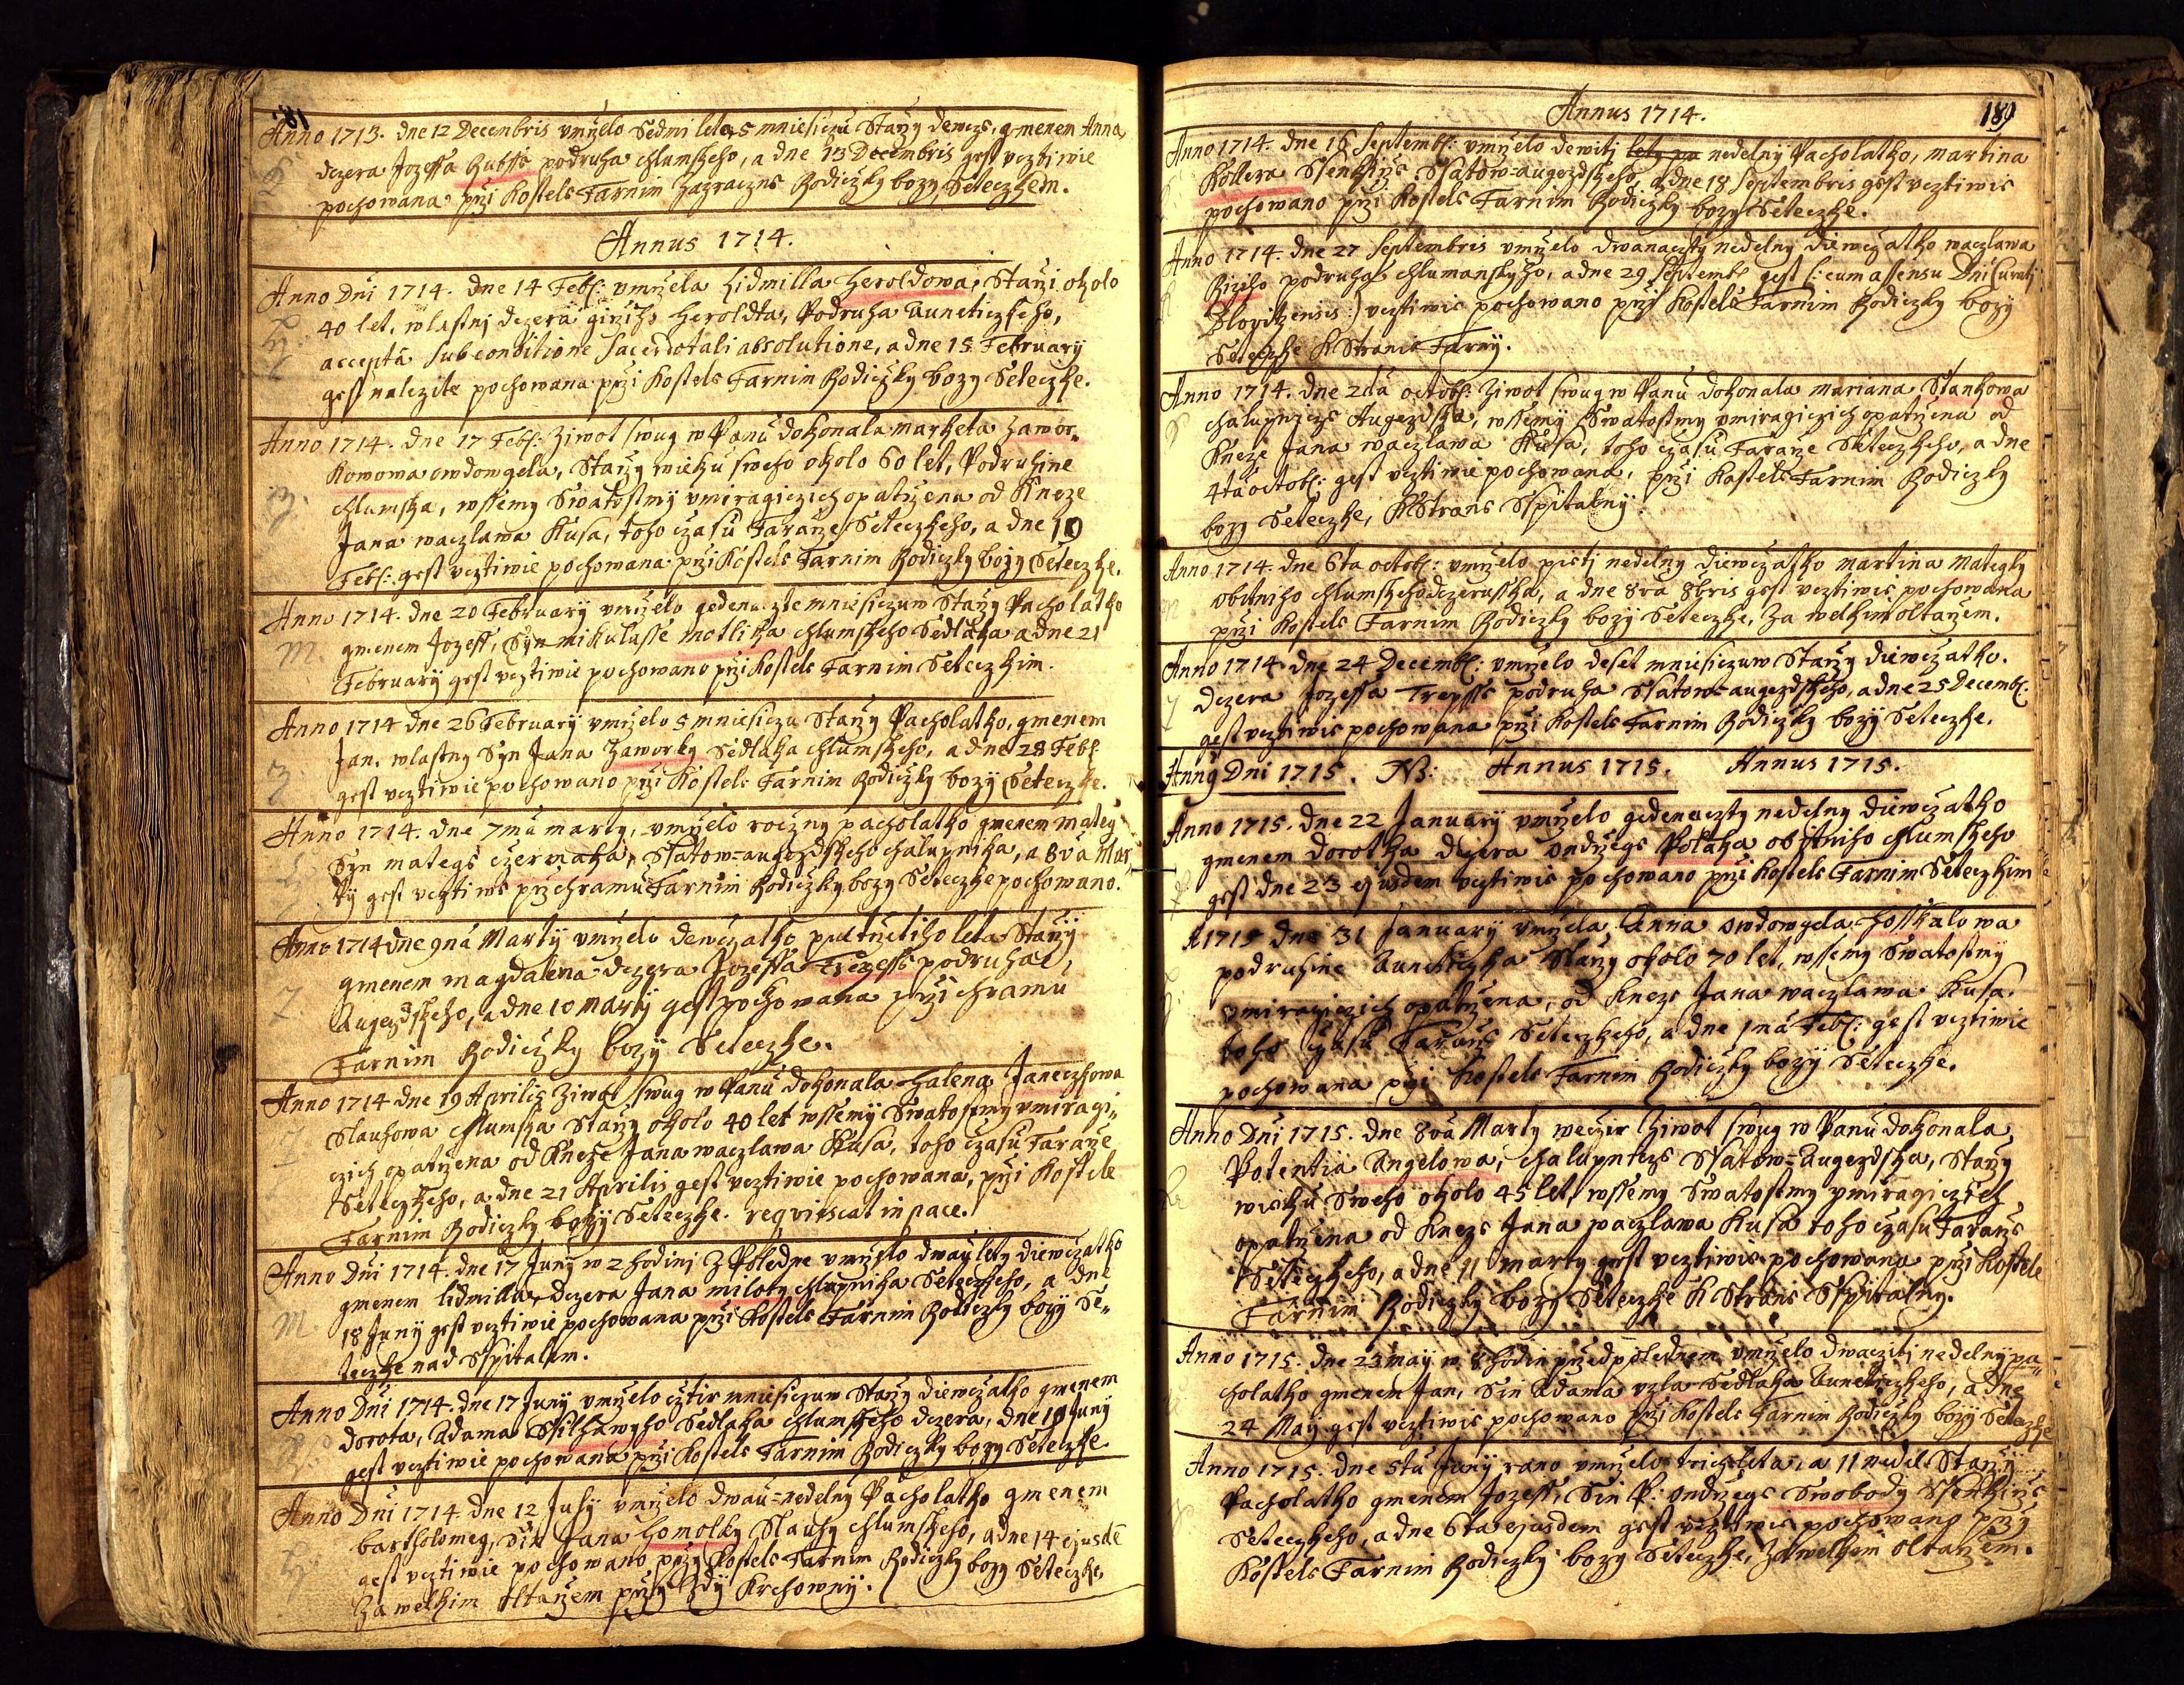 Anno 1713. dne 12 Decembris vmrželo Sedmi leta, 5 mniesiczu Starzy dewcze, gmenem Anna
dczera Jozeffa Bubsse podruha chlumskeho, a dne 13 Decembris gest vcztiwie
pochowana przi Kostele Farnim Zazraczne Rodiczky bozy Seteczkem.
Annus 1714.
Anno Dni 1714. dne 14 Feb: vmrzela Lidmilla Heroldowa, Starzi okolo
40 let, wlastnj dczera girziho Heroldta, Podruha Auneticzkeho,
accepta sub conditione sacerdotali absolutione, a dne 15 February
gest nalezite pochowana przi Kostele Farnim Rodiczky bozy Seteczke.
Anno 1714. dne 17 Feb: Ziwot swug w Panu dokonala marketa Zawor„
Kowowa owdowgela, Starzy wieku sweho okolo 60 let, Podruhine
chlumska, wssemy Swatostmy vmiragiczich opatrzena od Kneze
Jana waczlawa Kusa, toho czasu Faraze Seteczkeho, a dne 19
Feb: gest vcztiwie pochowana przi Kostele Farnim Rodiczky bozy Seteczke.
Anno 1714. dne 20 February vmrzelo gedenaczte mniesiczuw Starzy Pacholatko
m. gmenem Jozeff, Syn mikulasse motlika chlumskeho Sedlaka a dne 21
February gest vcztiwie pochowano przi Kostele Farnim Seteczkim.
Anno 1714 dne 26 February vmrzelo 5 mniesiczu Starzy Pacholatko, gmenem
Jan. wlastny Syn Jana Zaworky Sedlaka chlumskeho, a dne 28 Feb:
gest vcztiwie pochowano przi Kostele Farnim Rodiczky bozy Seteczke.
Anno 1714. dne 7ma marty, vmrzelo roczny pacholatko gmenem mateg
Syn matege czermaka, Slatow=augezdskeho chalupnika, a 8va Mar„
ty gest vcztiwe przi chramu Farnim Rodiczky bozy Seteczke pochowano.
Anno 1714 dne 9na Marty vmrzelo dewczatko pul trzetiho leta Starzy
gmenem magdalena dczera Jozeffa Trepesse podruha
Augezdskeho, a dne 10 marty gest pochowana przi chramu
Farnim Rodiczky bozy Seteczke.
Anno 1714 dne 19 Aprilis Ziwot swug w Panu dokonala Halena Janeczkowa
Slauhowa chlumska Starzy okolo 40 let wssemy Swatostmy vmiragi„
czich opatrzena od Kneze Jana waczlawa Kusa, toho czasu Faraze
Seteczkeho, a dne 21 Aprilis gest vcztiwie pochowana, przi Kostele
Farnim Rodiczky bozy Seteczke. reqviescat in pace.
Anno Dni 1714. dne 17 Juny w 2 hodinj Z Poledne vmrzelo dwau lety diewczatko
M. gmenem lidmilla, dczera Jana miloty chlupnika Seteczkeho, a dne
18 Juny gest vcztiwie pochowana przi Kostele Farnim Rodiczky bozy Se„
teczke nad Sspitalem.
Anno Dni 1714. dne 17 Juny vmrzelo cztir mniesiczuw Starzy diewczatko gmenem
dorota, Adama Sstilhawyho Sedlaka chlumskeho dczera, dne 19 Juny
gest vcztiwie pochowana przi Kostele Farnim Rodiczky bozy Seteczke
Anno Dni 1714 dne 12 July vmrzelo dwau=nedelny Pacholatko gmenem
bartholomeg, Sin Jana Homolky Slauhy chlumskeho, a dne 14 ejusde
gest vcztiwie pochowano przy Kostele Farnim Rodiczky bozy Seteczke,
Za welkim Oltarzem przy Zdy Krchowny.
Annus 1714. 189
Anno 1714. dne 16 Septemb: vmrzelo dewiti nedelny Pacholatko, martina
Kollera Ssenkirze Slatow=augezdskeho, a dne 18 Septembris gest vcztiwie
pochowano przi Kostele Farnim Rodiczky bozy Seteczke.
Anno 1714. dne 27 Septembris vmrzelo dwanaczty nedelny diewczatko waczlawa
podruha chlumanskyho, a dne 29 Septemb: gest (: cum assensu Dni Curati
Blovitzensis :) vcztiwie pochowano przi Kostele Farnim Rodiczky bozy
Seteczke K Stranie Farny.
Anno 1714. dne 2da octob: Ziwot swug w Panu dokonala mariana Stankowa
chalupnicze Augezdska, wssemy Swatostmy vmiragiczich opatrzena od
Kneze Jana waczlawa Kusa, toho czasu Faraze Seteczkeho, a dne
4ta octob: gest vcztiwie pochowana, przi Kostele Farnim Rodiczky
bozy Seteczke, K Strane Sspitalny.
Anno 1714. dne 6ta octob: vmrzelo pieti nedelny diewczatko martina mategky
obitniho chlumskeho dczerusska, a dne 8va 8bris gest vcztiwie pochowana
przi Kostele Farnim Rodiczky bozy Seteczke, Za welkim oltarzem.
Anno 1714. dne 24 Decemb: vmrzelo deset mniesiczuw Starzy diewczatko.
dczera Jozeffa Trepsse podruha Slatow=augezdskeho, a dne 25 Decemb:
gest vcztiwie pochowana przi Kostele Farnim Rodiczky bozy Seteczke.
Anno Dni 1715. NB: Annus 1715. Annus 1715.
Anno 1715. dne 22 January vmrzelo gedenaczty nedelny diewczatko
gmenem dorotka dczera ondrzege Polaka obitniho chlumskeho
gest dne 23 ejusdem vcztiwie pochowano przi Kostele Farnim Seteczkim
A 1715 dne 31 January vmrzela Anna owdowgela Hosskalowa
podruhine Auneticzka Starzy okolo 70 let, wssemy Swatostmy
vmiragiczich opatrzena, od Kneze Jana waczlawa Kusa.
toho czasu Faraze Seteczkeho, a dne 1na Feb: gest vcztiwie
pochowana przi Kostele Farnim Rodiczky bozy Seteczke.
Anno Dni 1715. dne 8va Marty weczir Ziwot swug w Panu dokonala
Potentia Angelowa, chalupnicze Slatow=Augezdska, Starzy
wieku Sweho okolo 45 let, wssemy Swatostmy vmiragiczich
opatrzena od Kneze Jana waczlawa Kusa toho czasu Faraze
Seteczkeho, a dne 11 marty gest vcztiwie pochowana przi Kostele
Farnim Rodiczky bozy Seteczke K Stranie Sspitalny.
Anno 1715. dne 23 may w 8 hodin przed polednem vmrzelo dwacziti nedelny pa„
cholatko gmenem Jan, Sin Adama vzla Sedlaka Auneticzkeho, a dne
24 May gest vcztiwie pochowano przi Kostele Farnim Rodiczky bozy Seteczke
Anno 1715. dne 5tu Juny rano vmrzelo trzi leta, a 11 nedel Starzy
Pacholatko gmenem Jozeff, Sin P: ondrzege Swobody Ssenkirze
Seteczkeho, a dne 6ta ejusdem gest vcztiwie pochowano przy
Kostele Farnim Rodiczky bozy Seteczke, Za welkim oltarzem.